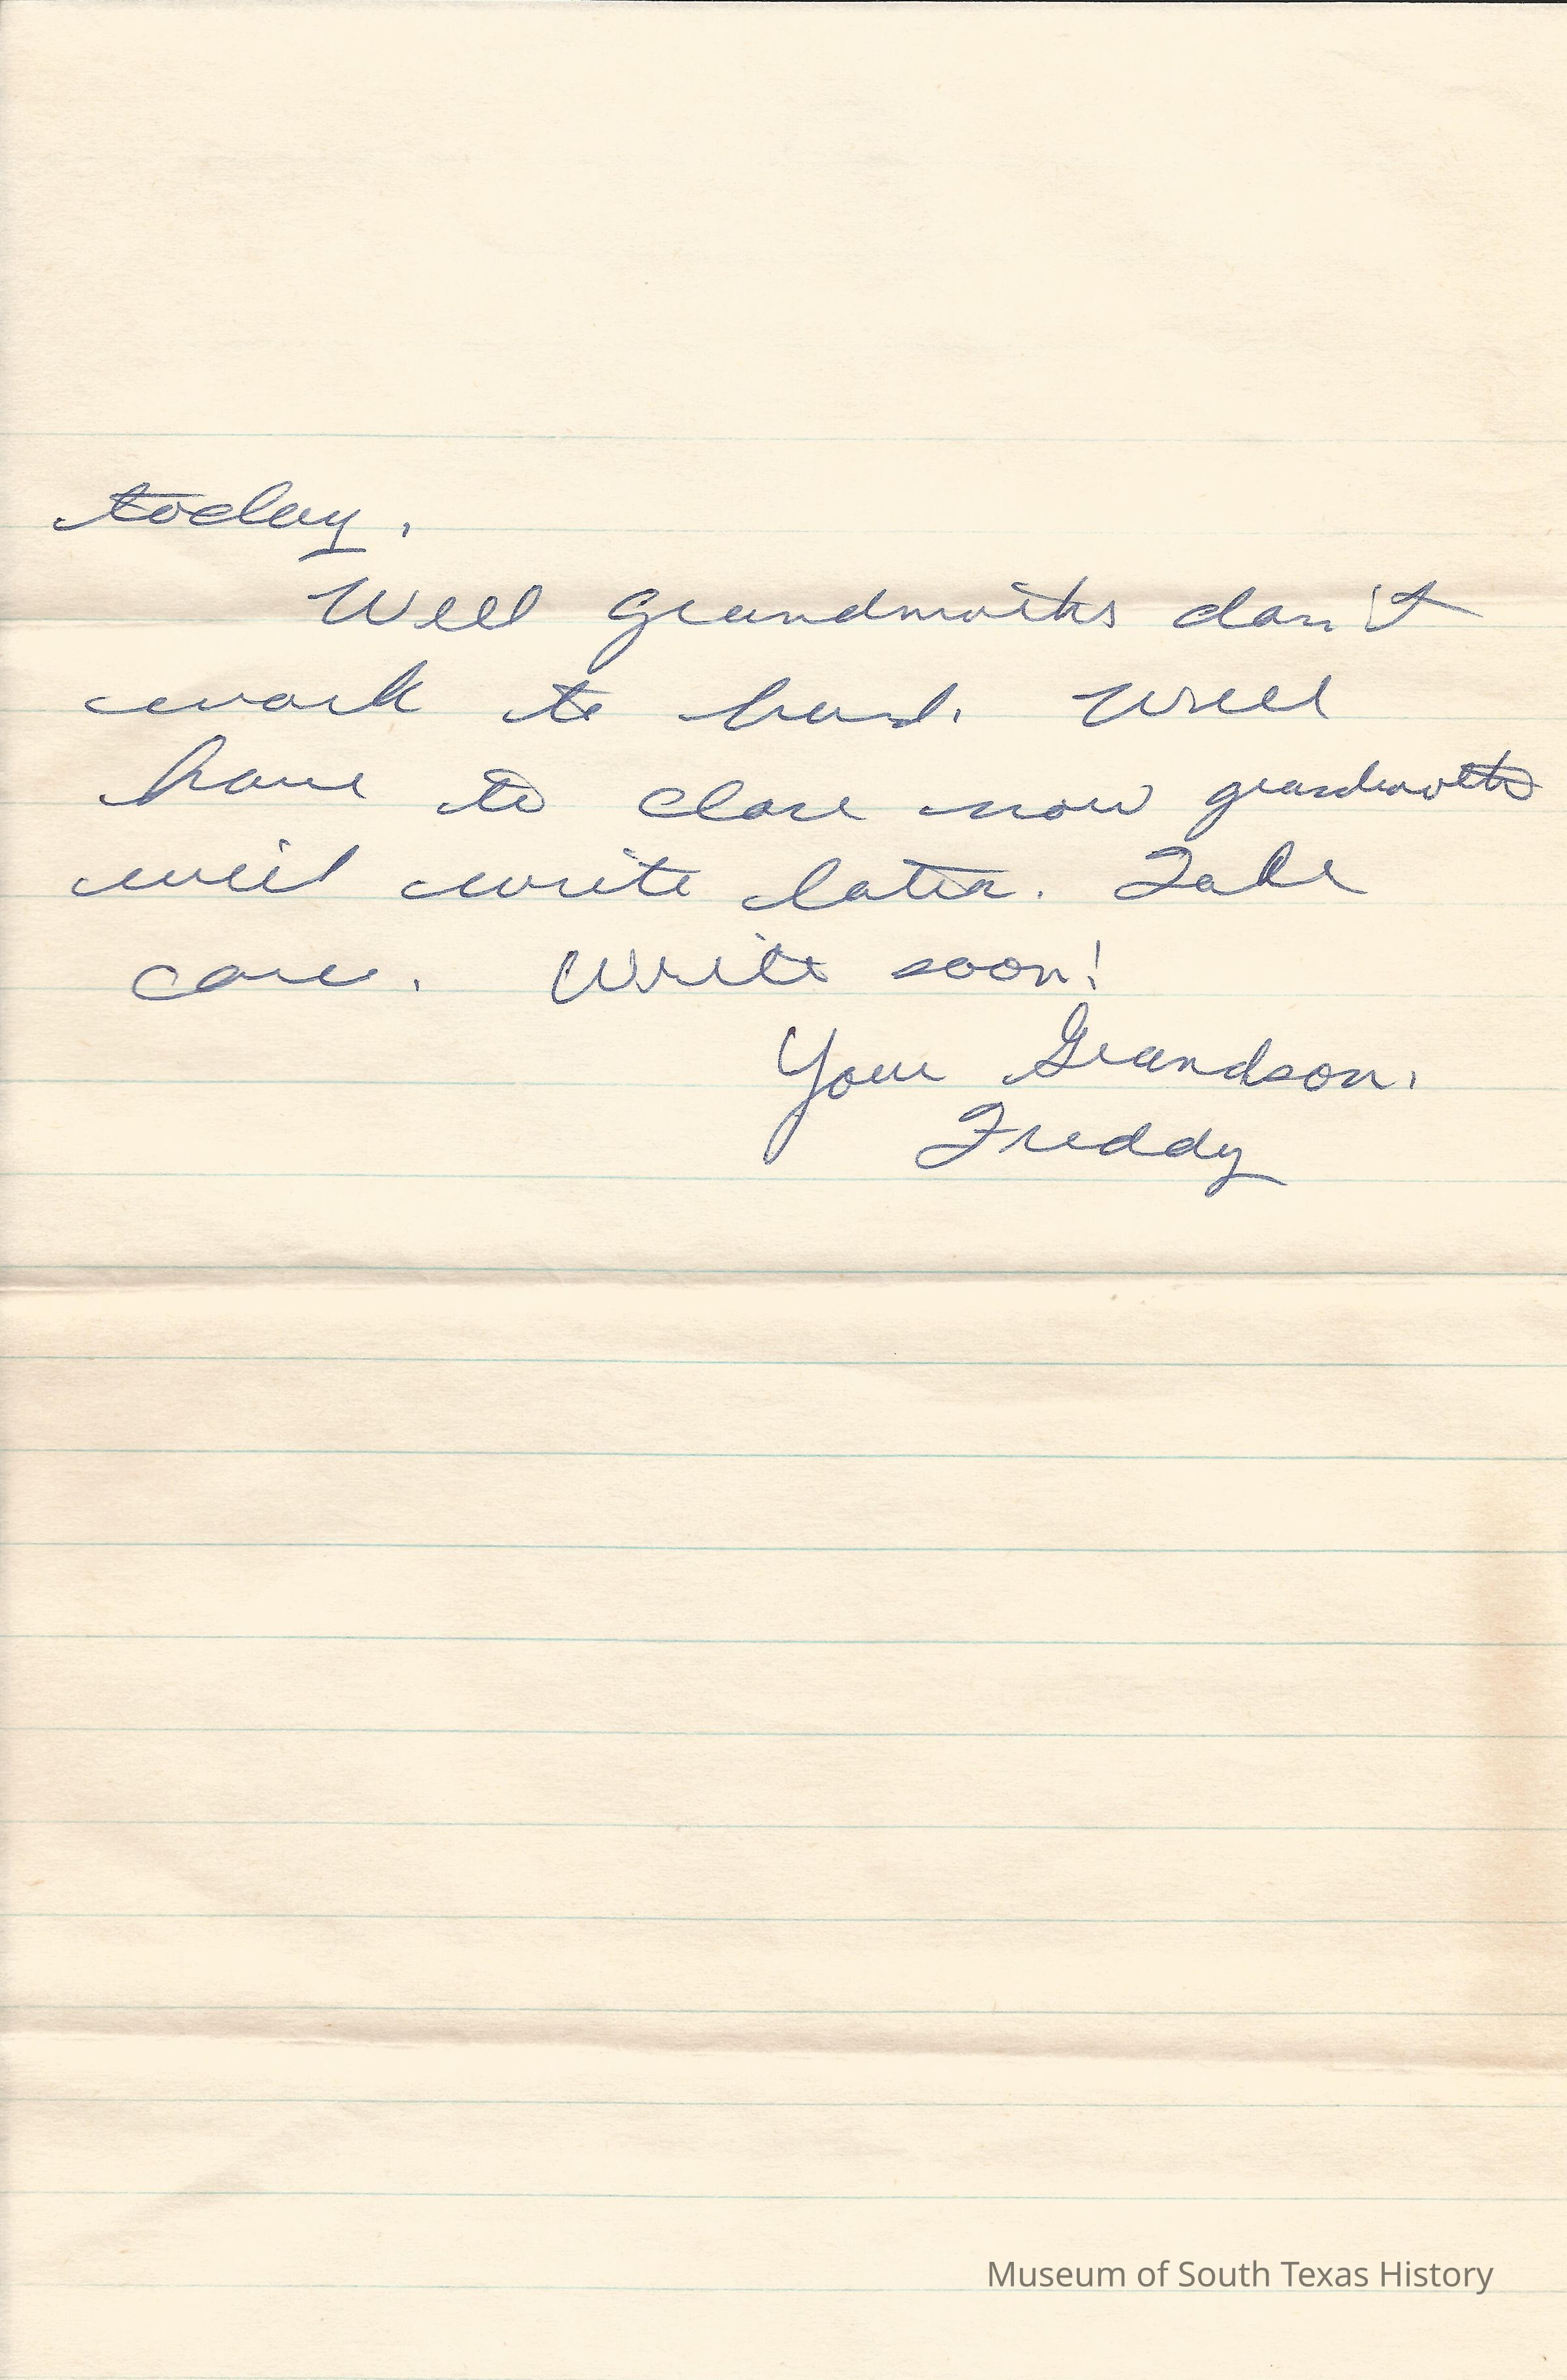 today.
Well Grandmother don't
work to hard. Well
have to close now grandmother
will write later. Take
care. Write soon!
Your Grandson,
Freddy
Museum of South Texas History